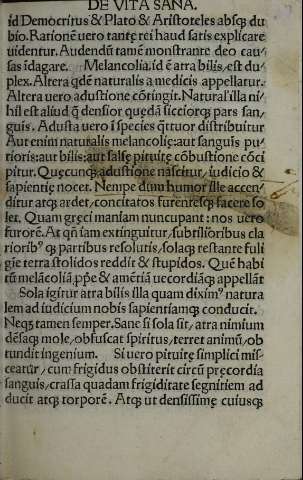 DE VITA SANA.
id Democritus & Plato & Aristoteles absq; du
bio. Rationē uero tantę rei haud satis explicare
uidentur. Audendū tamē monstrante deo cau-
sas idagare. Melancolia .id ē atra bilis, est du
plex. Altera qdē naturalis a medicis appellatur.
Altera uero adustione cōtingit. Natural' illa ni-
hil est aliud q̄ densior quędā sicciorq; pars san,
guis. Adusta uero ī species q̄ttuor distribuitur
Aut enim naturalis melancolię: aut sanguis pu-
rioris: aut bilis: aut salsę pituitę cōbustione cōci
pitur. Quęcunq; adustione nascitur, iudicio &
sapientię nocet. Nempe dum humor ille accen
ditur atq; ardet, concitatos furentesq; facere so
let. Quam gręci maniam nuncupant: nos uero
furorē. At qn̄ iam extinguitur, subtilioribus cla
rioribꝰ q; partibus resolutis, solaq; restante fuli
gie terra stolidos reddit & stupidos. Quē habi
tū melācoliā ,pp̄e & amētiā uecordiāq; appellāt
Sola igitur atra bilis illa quam diximꝰ natura
lem ad iudicium nobis sapientiamq; conducit.
Neq; tamen semper. Sane si sola sit, atra nimium
dēsaq; mole, obfuscat spiritus, terret animū, ob
tundit ingenium. Si uero pituitę simplici mis-
ceatur, cum frigidus obstiterit circū pręcordia
sanguis, crassa quadam frigiditate segnitiem ad
ducit atq; torporē. Atq; ut densissimę cuiusq;